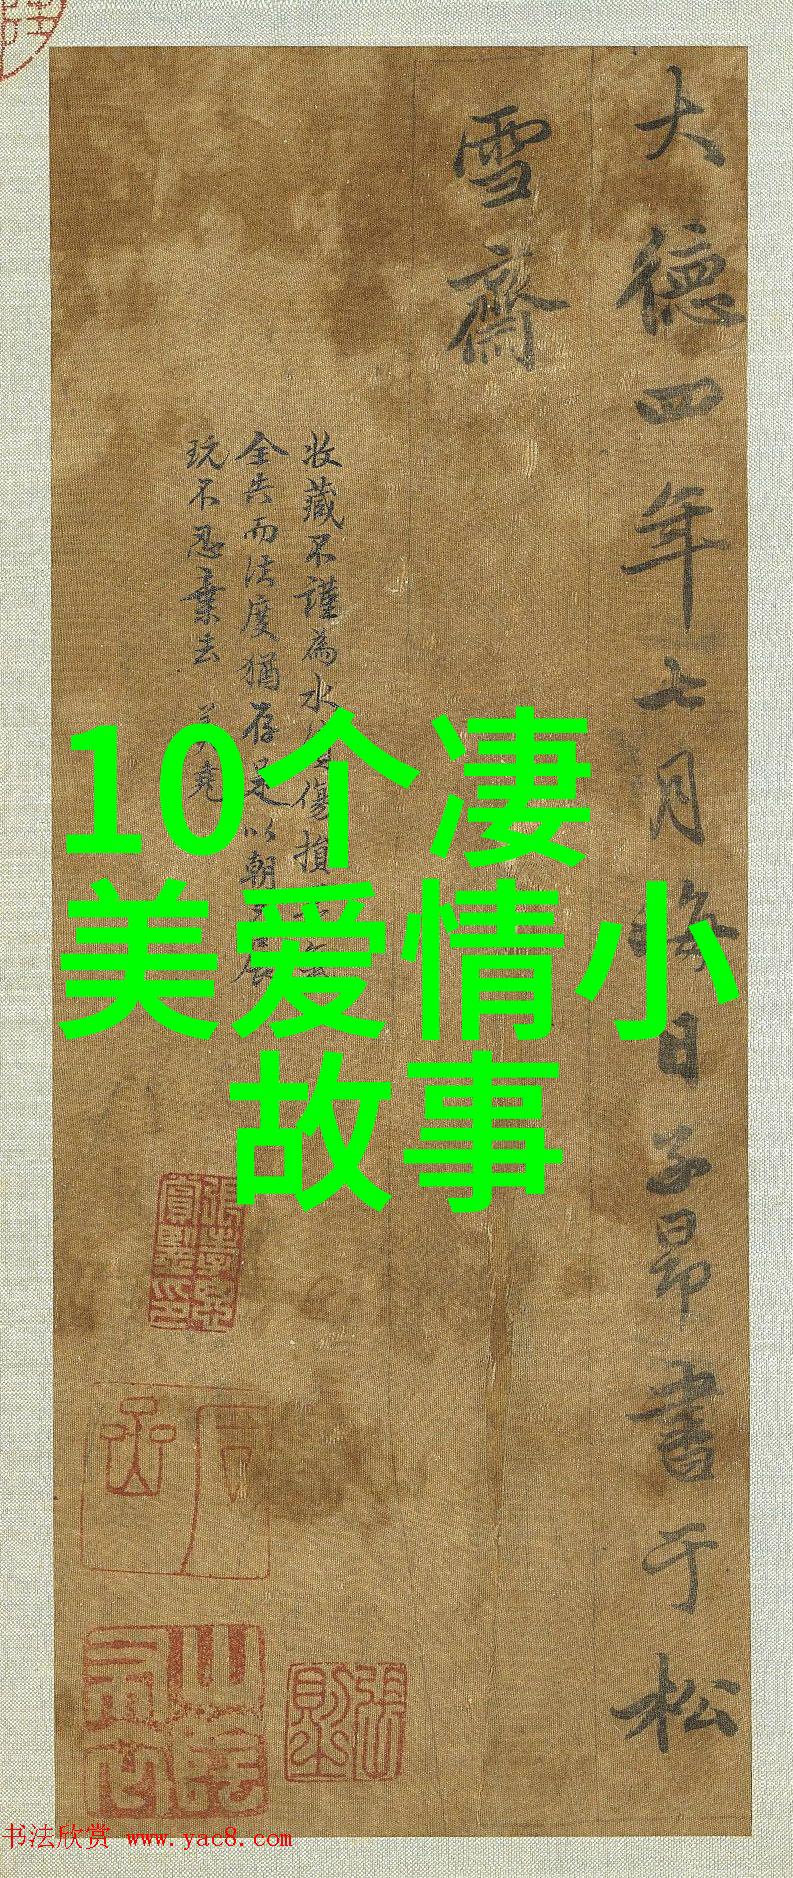 大德四年七月海日子昂書于松
雪齋
收藏不謹為水傷損
全失而法度猶存足以朝
玩不忍棄去
10个凄
美爱情小
故事
书法欣赏 www.yac8.com